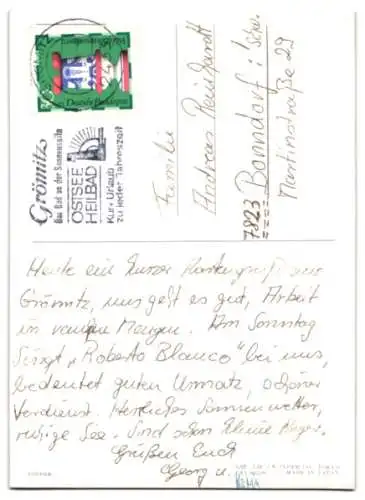 Grömitz
Das Bad an der Sonnenseite
OSTSEE
HEILBAD
Kur + Urlaub
zu jeder Jahreszeit
Deutsche Bundespost
Familie
Andreas Reichardt
7823 Bonndorf i. Schw.
Martinstraße 29
Heute ein kurzer Kartengruß aus
Grömitz, uns geht es gut, Arbeit
in Mengen. Am Sonntag
singt „Roberto Blanco“ bei uns,
bedeutet guten Umsatz, schöner
Verdienst. Herrliches Sonnenwetter,
ruhige See. Sind schon kleine
Grüßen Euch
Georg u.